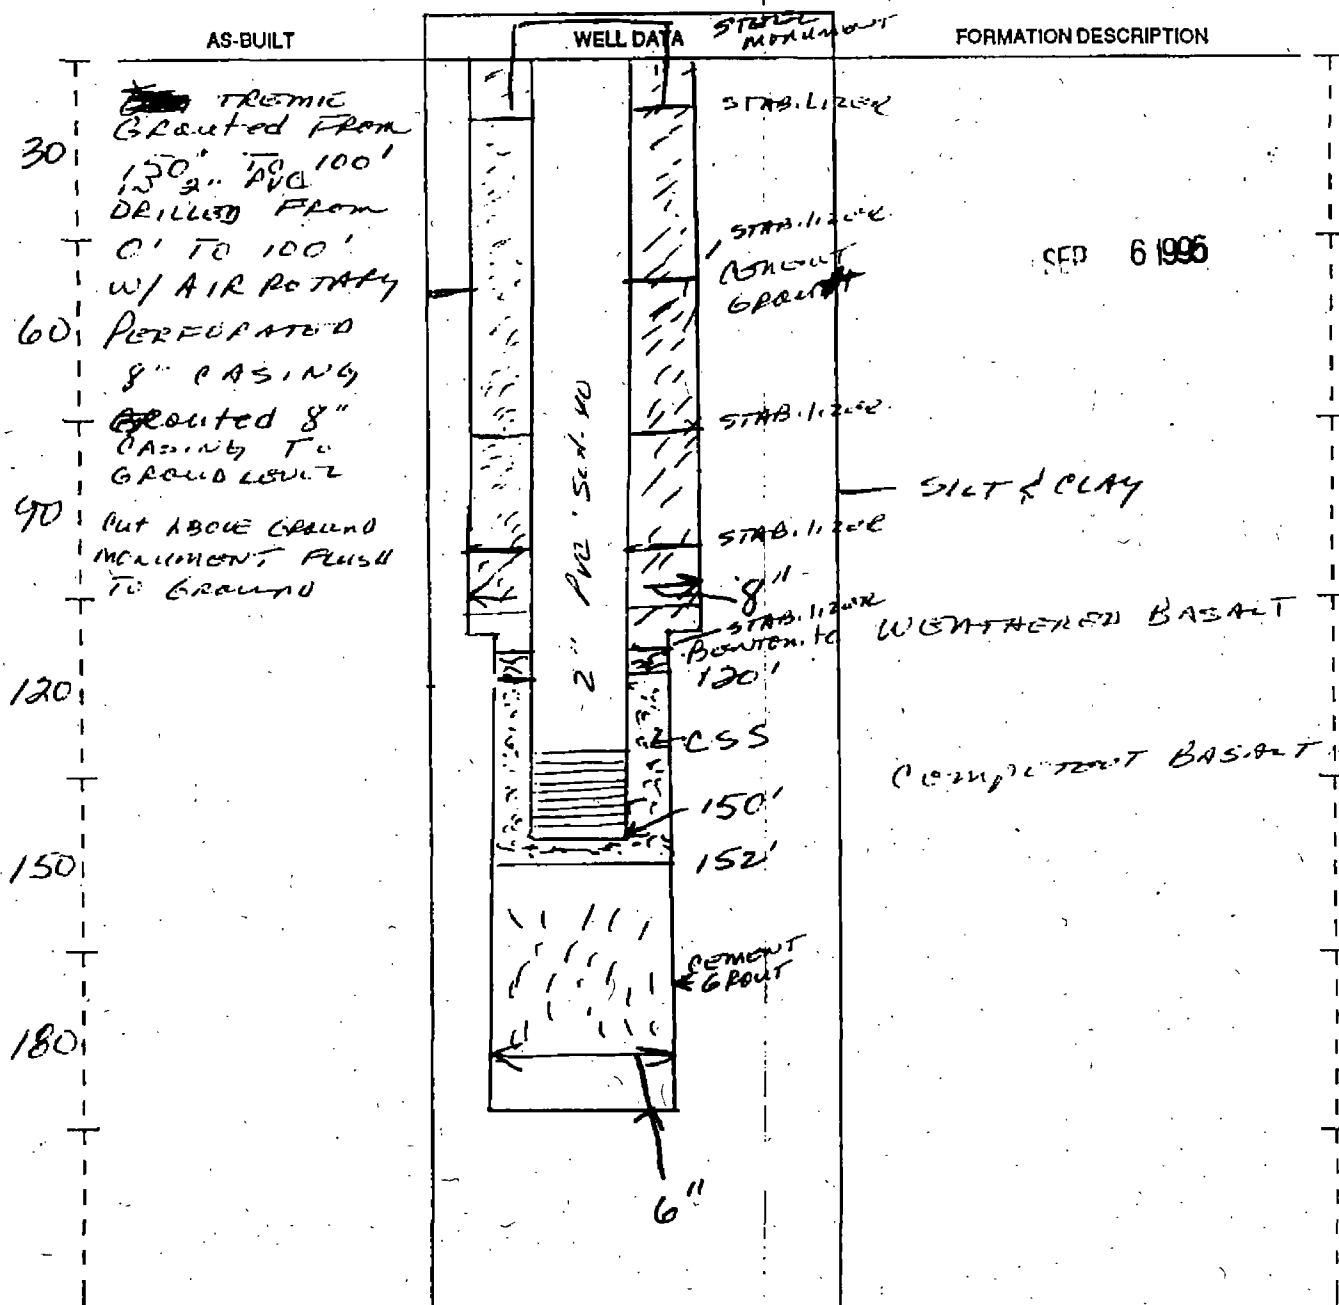 AS-BUILT
WELL DATA
FORMATION DESCRIPTION
STEEL
MONUMENT
TREMIE
GROUTED FROM
150' TO 100'
2" PVC
DRILLED FROM
0' TO 100'
W/ AIR ROTARY
PERFORATED
8" CASING
GROUTED 8"
CASING TO
GROUND LEVEL
CUT ABOVE GROUND
MONUMENT FLUSH
TO GROUND
30
60
90
120
150
180
STABILIZER
STABILIZER
CEMENT
GROUT
STABILIZER
STABILIZER
8"
STABILIZER
BENTONITE
120'
CSS
150'
152'
CEMENT
GROUT
6"
2" PVC SCH. 40
SEP 6 1995
SILT & CLAY
WEATHERED BASALT
COMPETENT BASALT